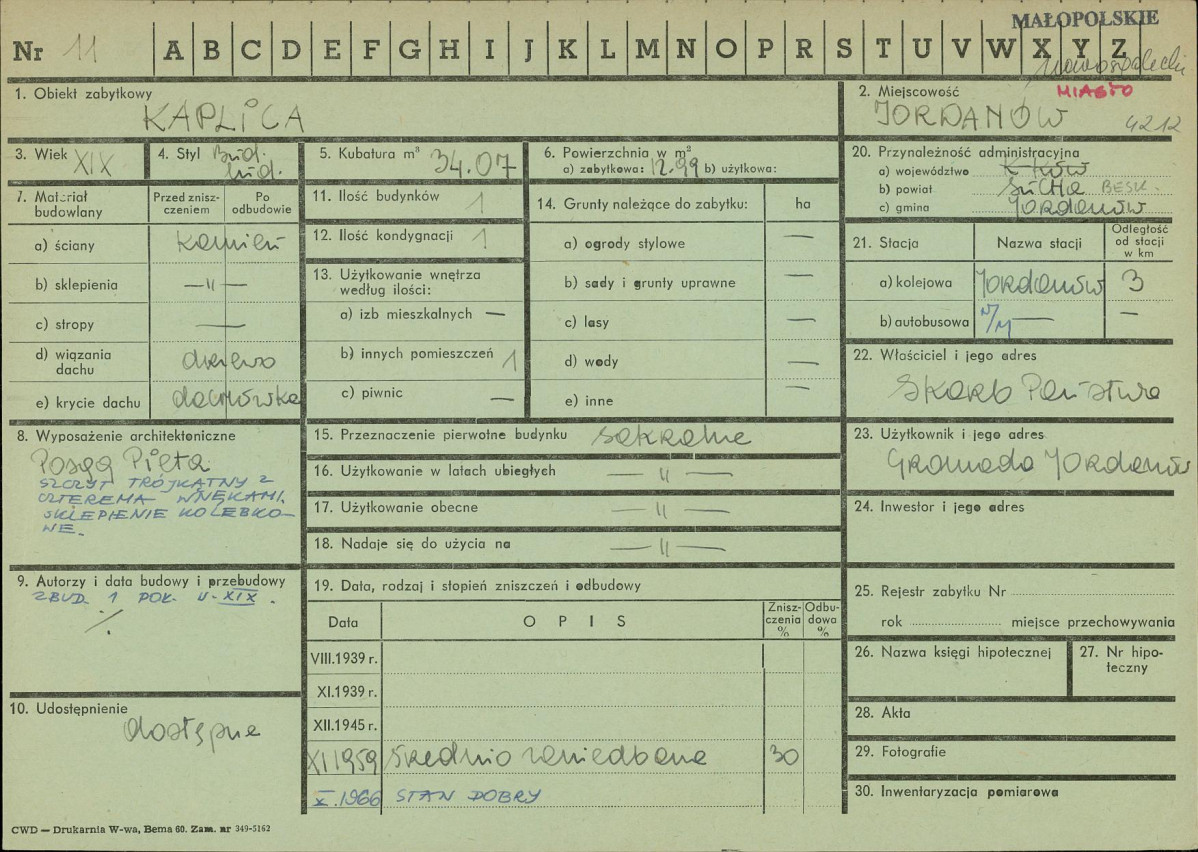 MAŁOPOLSKIE
Nr 11 A B C D E F G H I J K L M N O P R S T U V W X Y Z
nowosądeckie
1. Obiekt zabytkowy
KAPLICA
2. Miejscowość MIASTO
JORDANÓW 4212
3. Wiek XIX
4. Styl Bud.
lud.
5. Kubatura m³ 34.07
6. Powierzchnia w m²
a) zabytkowa: 12.99 b) użytkowa:
20. Przynależność administracyjna
a) województwo K-ków
b) powiat SUCHA BESK.
c) gmina Jordanów
7. Materiał budowlany
Przed zniszczeniem
Po odbudowie
a) ściany kamień
b) sklepienia —"—
c) stropy —
d) wiązania dachu drzewo
e) krycie dachu dachówka
11. Ilość budynków 1
12. Ilość kondygnacji 1
13. Użytkowanie wnętrza
według ilości:
a) izb mieszkalnych —
b) innych pomieszczeń 1
c) piwnic —
14. Grunty należące do zabytku: ha
a) ogrody stylowe —
b) sady i grunty uprawne —
c) lasy —
d) wody —
e) inne —
21. Stacja Nazwa stacji Odległość od stacji w km
a) kolejowa Jordanów 3
b) autobusowa N/M — —
22. Właściciel i jego adres
Skarb Państwa
8. Wyposażenie architektoniczne
Posąg Pieta
SZCZYT TRÓJKĄTNY Z
CZTEREMA WNĘKAMI.
SKLEPIENIE KOLEBKO-
WE.
15. Przeznaczenie pierwotne budynku sakralne
16. Użytkowanie w latach ubiegłych —"—
17. Użytkowanie obecne —"—
18. Nadaje się do użycia na —"—
23. Użytkownik i jego adres
Gromada Jordanów
24. Inwestor i jego adres
9. Autorzy i data budowy i przebudowy
ZBUD. 1 POŁ. W. XIX.
10. Udostępnienie
dostępne
19. Data, rodzaj i stopień zniszczeń i odbudowy
Data OPIS Zniszczenia % Odbudowa %
VIII.1939 r.
XI.1939 r.
XII.1945 r.
XI 1959 średnio zaniedbana 30
X.1966 STAN DOBRY
25. Rejestr zabytku Nr
rok miejsce przechowywania
26. Nazwa księgi hipotecznej
27. Nr hipoteczny
28. Akta
29. Fotografie
30. Inwentaryzacja pomiarowa
CWD — Drukarnia W-wa, Bema 60. Zam. nr 349-5162